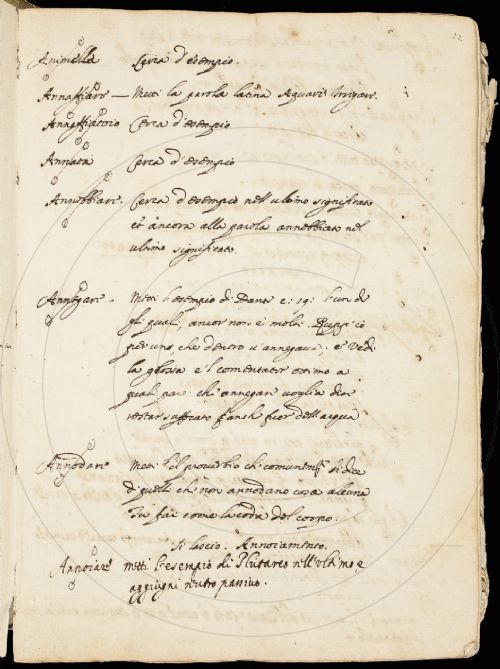 22
Animella Cerca d'esempio.
Annaffiare — Metti la parola latina Aquari Irrigar.
Annaffiatoio Cerca d'esempio
Annata Cerca d'esempio
Annebbiare. Cerca d'esempio nell'ultimo significato
et ancora alla parola annebbiato nel
ultimo significato.
Annegare. Metti l'esempio di Dante c: 19: l'un de
gli quali, ancor non è molt' Rupp' io
per uno, che dentro v'annegava. e Vedi
la glossa e 'l comentator ottimo a
quali par che annegar voglia dir
restar suffocato fuor dell'acqua
Annodare Metti 'l proverbio che comunem.te si dice
di quelli che non annodano cosa alcuna
Tu fai come la coda del corpo.
Si lascio. Annoiamento.
Annoiare metti l'esempio di Plutarco nell'Ultimo, e
aggiugni nutro passivo.